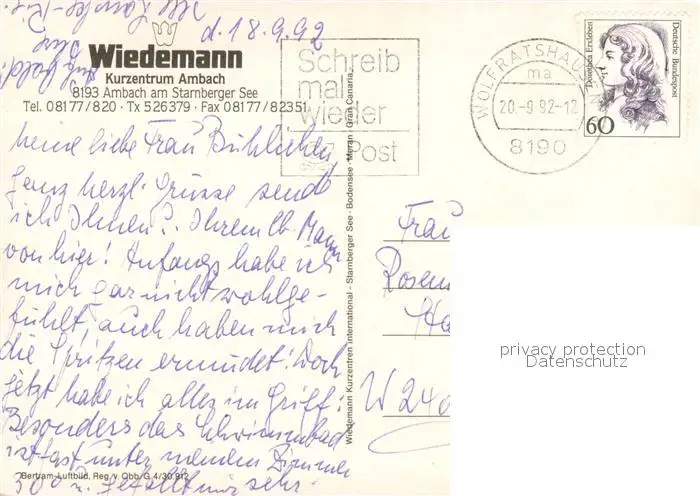 d. 18.9.92
Wiedemann
Kurzentrum Ambach
8193 Ambach am Starnberger See
Tel. 08177/820 · Tx 526379 · Fax 08177/82351
Schreib
mal
wieder
Post
WOLFRATSHAUSEN
ma
20.-9.92-12
8190
Dorothea Erxleben
Deutsche Bundespost
60
meine liebe Frau
Ganz herzl. Grüsse sende
ich Ihnen u. Ihrem lb. Mann
von hier! Anfangs habe ich
mich gar nicht wohlge-
fühlt, auch haben mich
die Spritzen ermüdet! Doch
jetzt habe ich alles im Griff.
Besonders das Schwimmbad
ist fast unter meinem Zimmer
300 u. gefällt mir sehr
Wiedemann Kurzentren international - Starnberger See - Bodensee - Meran - Gran Canaria
Frau
Rosem
Ha
W 240
privacy protection
Datenschutz
Bertram-Luftbild, Reg. v. Obb. G 4/30.912